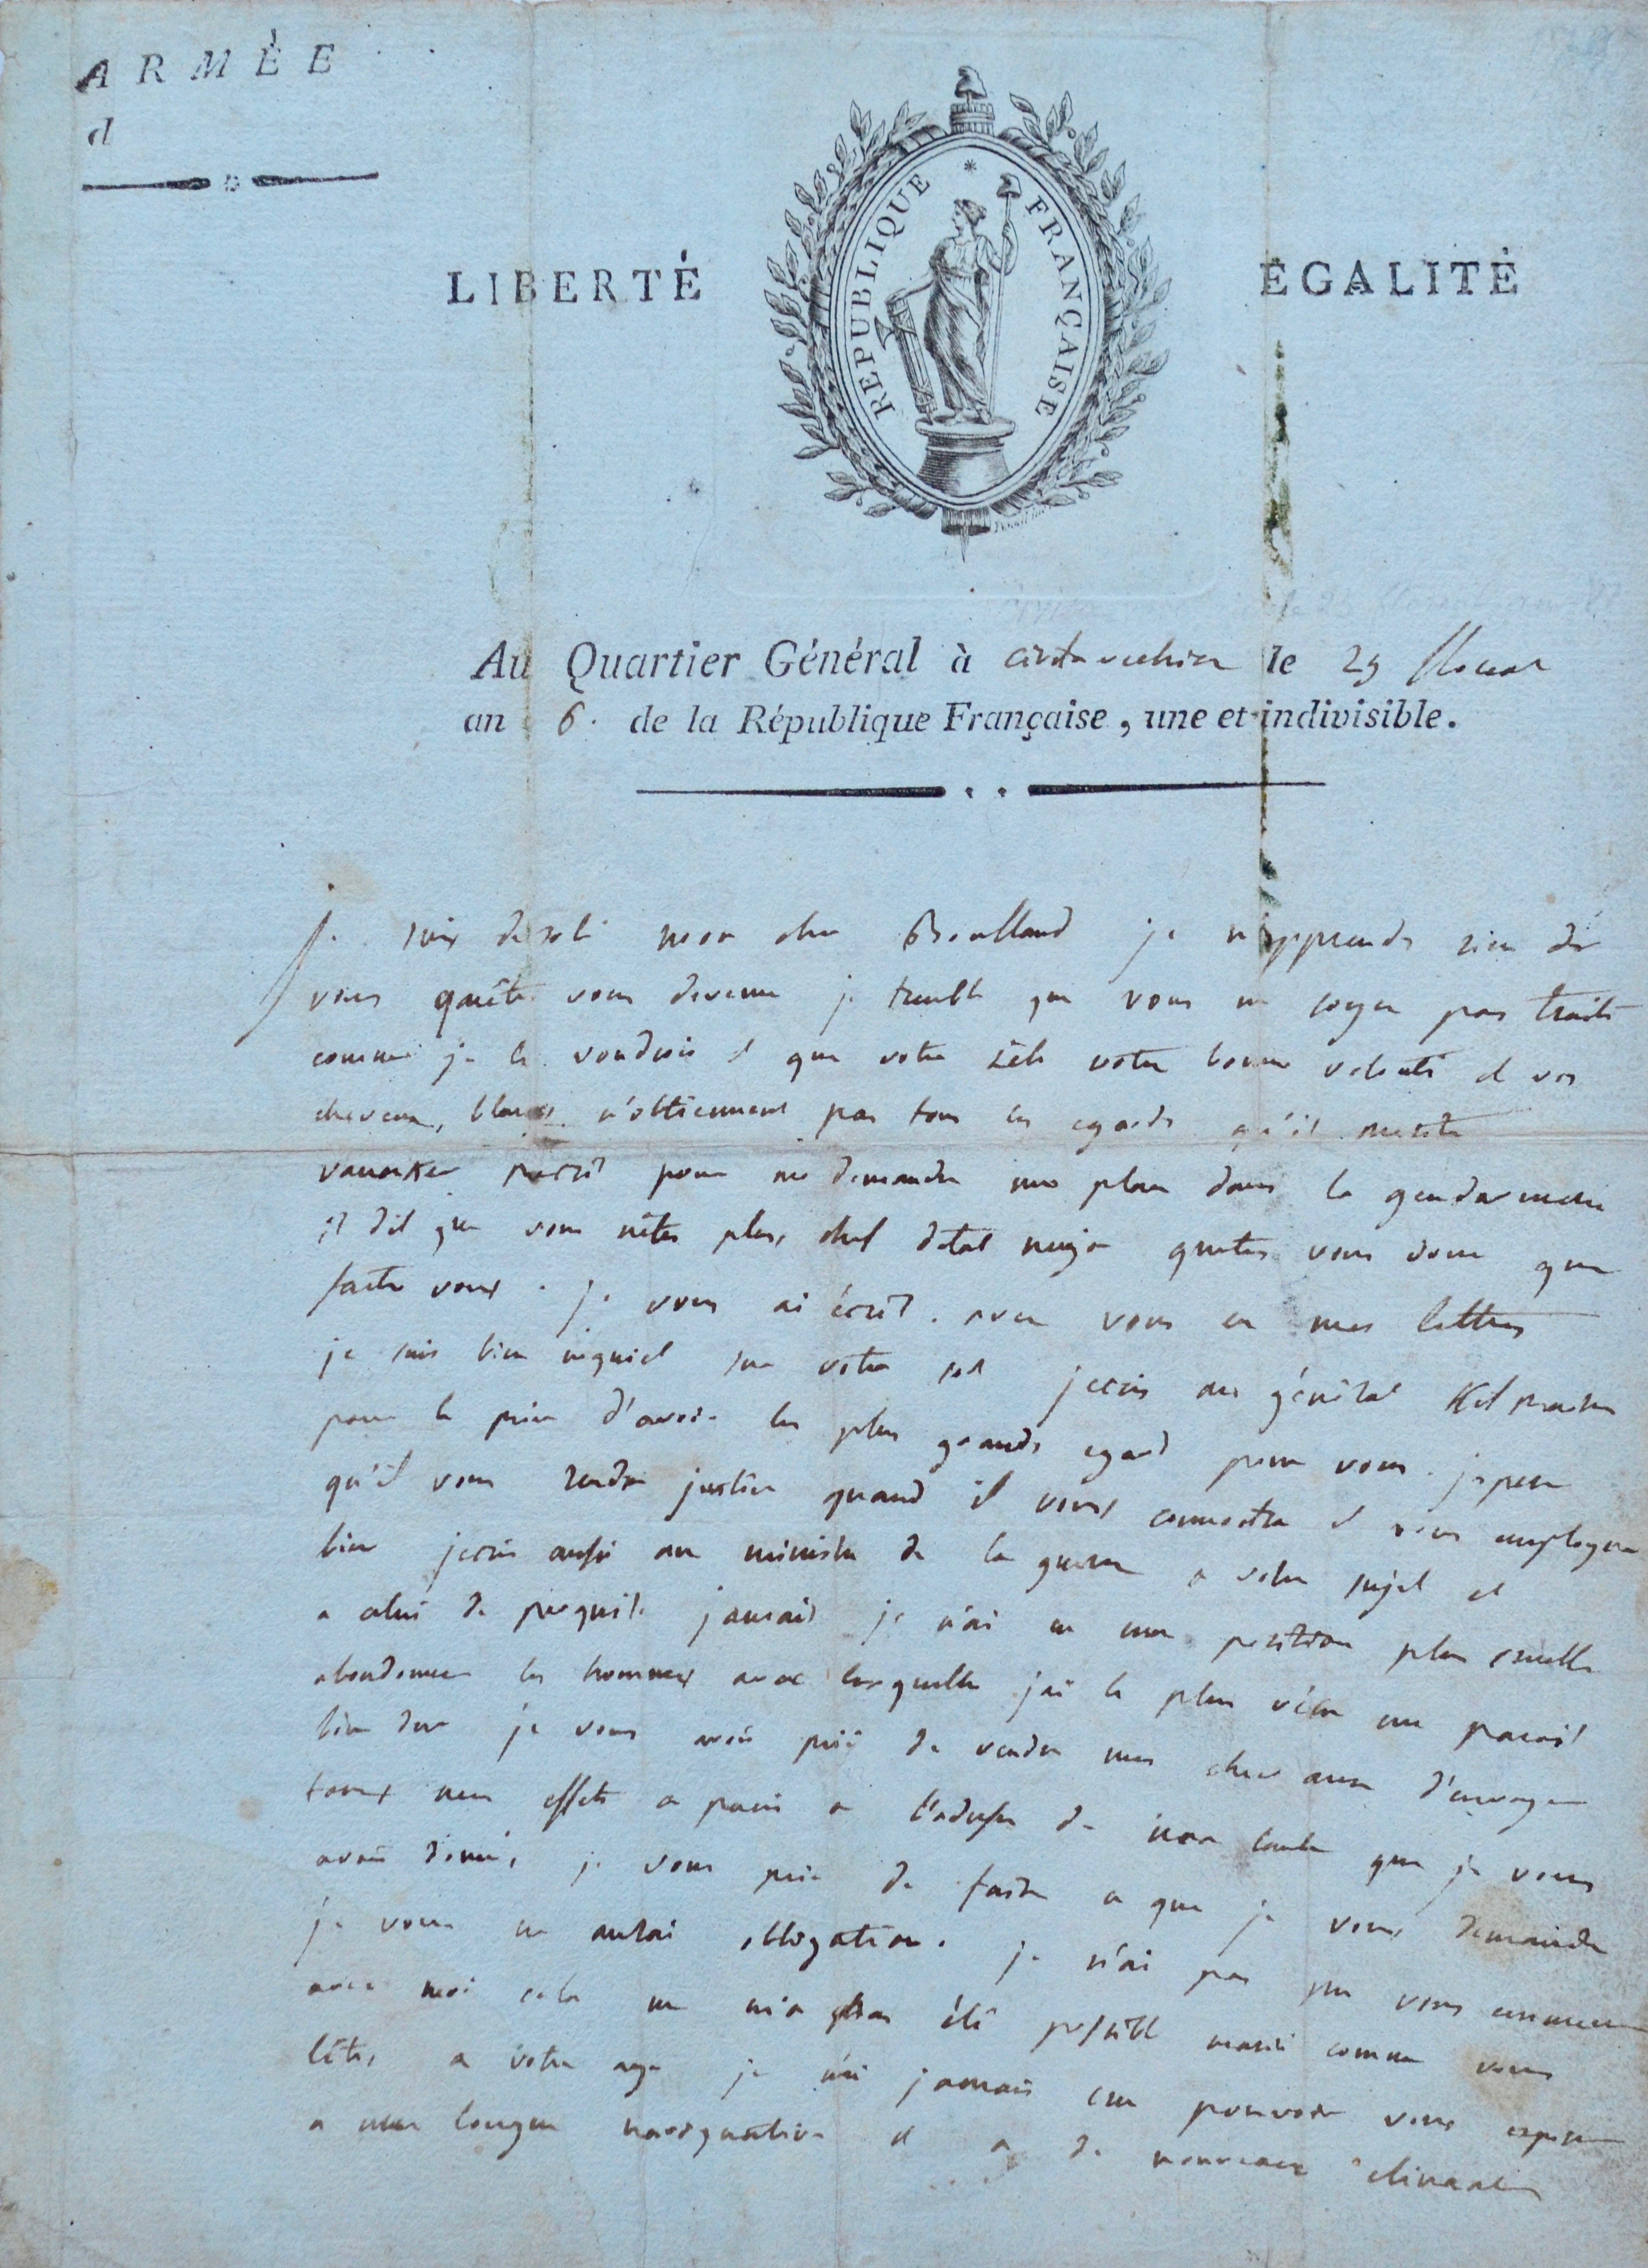 ARMÉE
d
LIBERTÉ
REPUBLIQUE FRANÇAISE
EGALITÉ
Au Quartier Général à civitavechia le 29 floreal
an 6. de la République Française, une et indivisible.
Je suis desolé mon cher je n'apprends rien de
vous quêtes vous devenu je tremble que vous ne soyez pas traité
comme je le voudrois et que votre zèle votre bonne volonté et vos
cheveux blancs n'obtiennent pas tous les egards qu'il merite
mecrit pour me demander une place dans la gendarmerie
il dit que vous nètes plus chef detat major quetes vous donc que
faite vous. je vous ai écrit. avez vous eu mes lettres
je suis bien inquiet sur votre sort jecris au général Kilmaine
pour le prier d'avoir les plus grands egard pour vous. jespere
qu'il vous rendra justice quand il vous connoitra et vous employera
bien jecris aussi au ministre de la guerre a votre sujet et
a celui de jamais je n'ai eu une position plus cruelle
abandonner les hommes avec lesquelle jai le plus vécu me paroit
bien dur je vous avois prié de vendre mes chevaux d'envoyer
tous mes effets a paris a l'adresse de mon que je vous
avois donné, je vous prie de faire ce que je vous demande
je vous en aurai obbligation. je n'ai pas pu vous emmener
avec moi cela ne m'a pas été possible marié comme vous
lêtes, a votre age je n'ai jamais cru pouvoir vous exposer
a une longue navigation et a de nouveaux climats